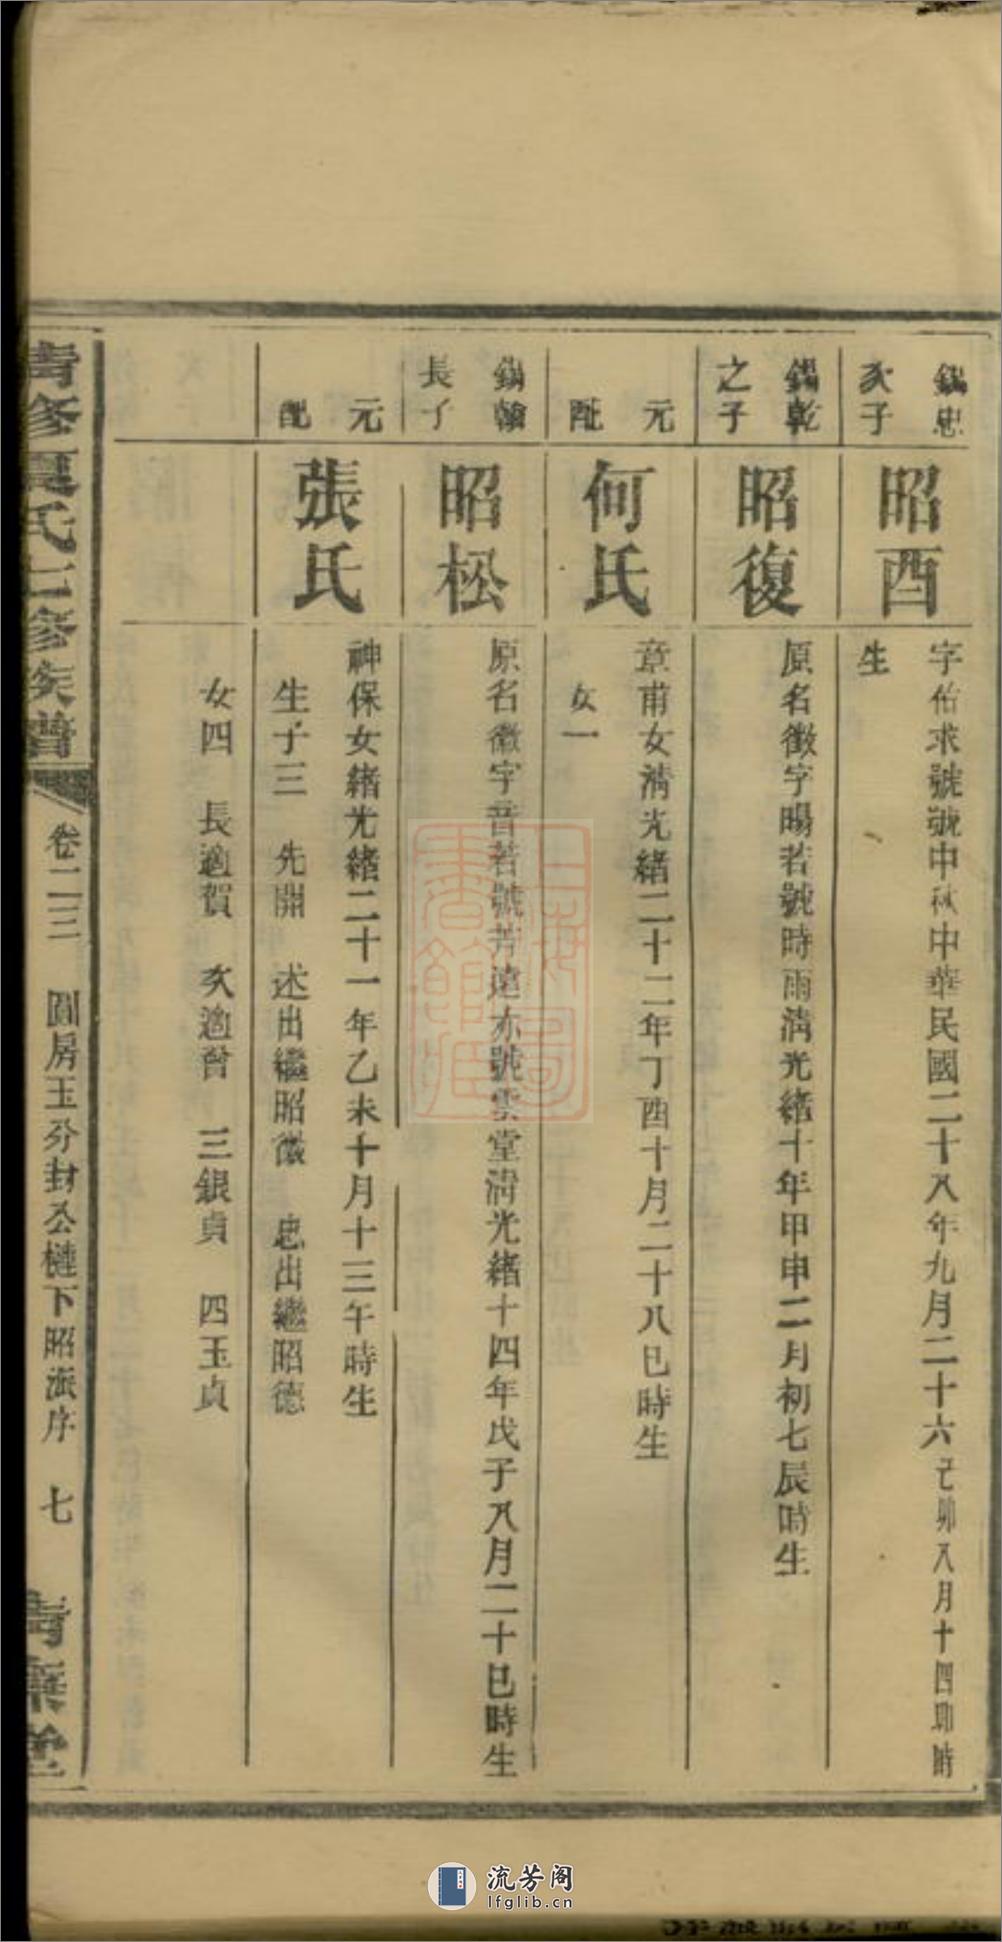 錫忠
次子
昭酉
字佑求號號中秋中華民國二十八年九月二十六己卯八月十四卯時
生
錫乾
之子
昭復
原名徵字暘若號時雨清光緒十年甲申二月初七辰時生
元
配
何氏
章甫女清光緒二十二年丁酉十月二十八巳時生
女一
錫翰
長子
昭松
原名徽字音若號芳遠亦號雲堂清光緒十四年戊子八月二十巳時生
元
配
張氏
神保女緒光緒二十一年乙未十月十三午時生
生子三 先開 述出繼昭徽 忠出繼昭德
女四 長適賀 次適曾 三銀貞 四玉貞
氏七修族譜
卷二三 圓房玉分封公槤下昭派序 七
流芳阁
lfglib.cn